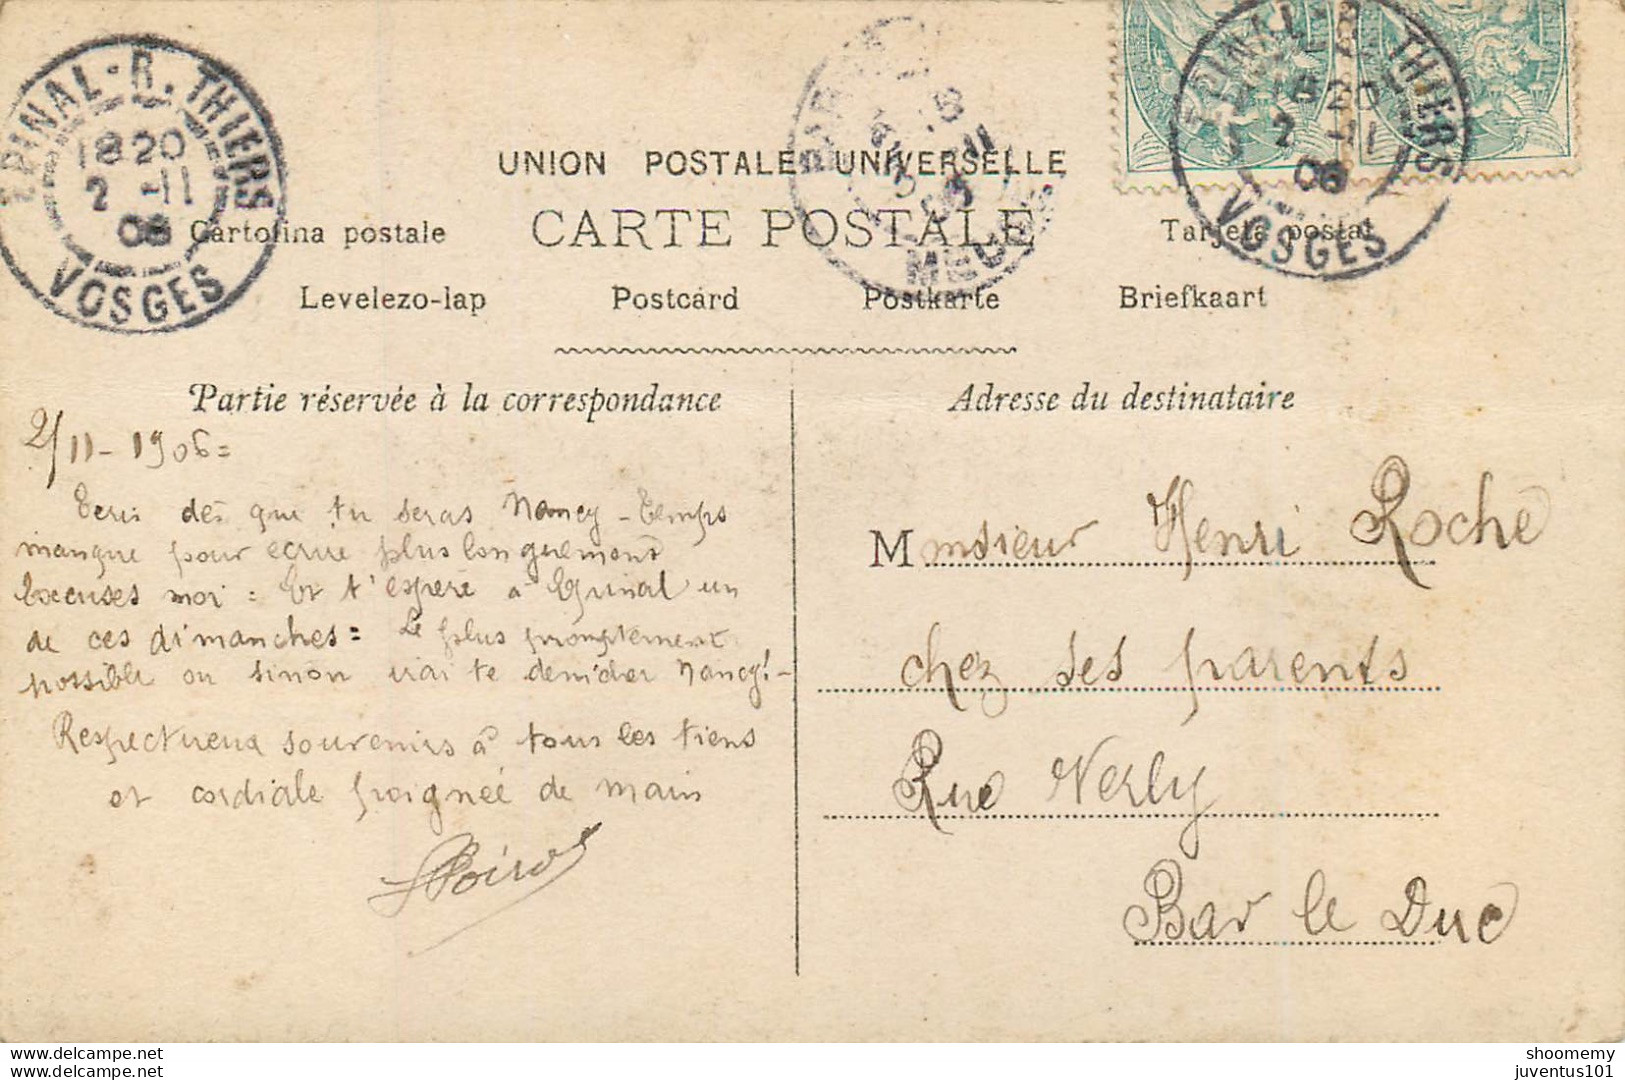 EPINAL - R. THIERS
1820
2 -11
06
VOSGES
EPINAL - R. THIERS
1820
2 -11
06
VOSGES
UNION POSTALE UNIVERSELLE
CARTE POSTALE
Cartolina postale
Tarjeta postal
Levelezo-lap
Postcard
Postkarte
Briefkaart
Partie réservée à la correspondance
2/11-1906=
Ecris dès que tu seras Nancy - Temps
manque pour écrire plus longuement
Excuses moi : Et t'espère à Epinal un
de ces dimanches = Le plus promptement
possible ou sinon irai te dénicher Nancy! -
Respectueux souvenirs à tous les tiens
et cordiale poignée de main
Poirot
Adresse du destinataire
Monsieur Henri Roche
chez ses parents
Rue Nerly
Bar le Duc
www.delcampe.net
shoomemy
juventus101